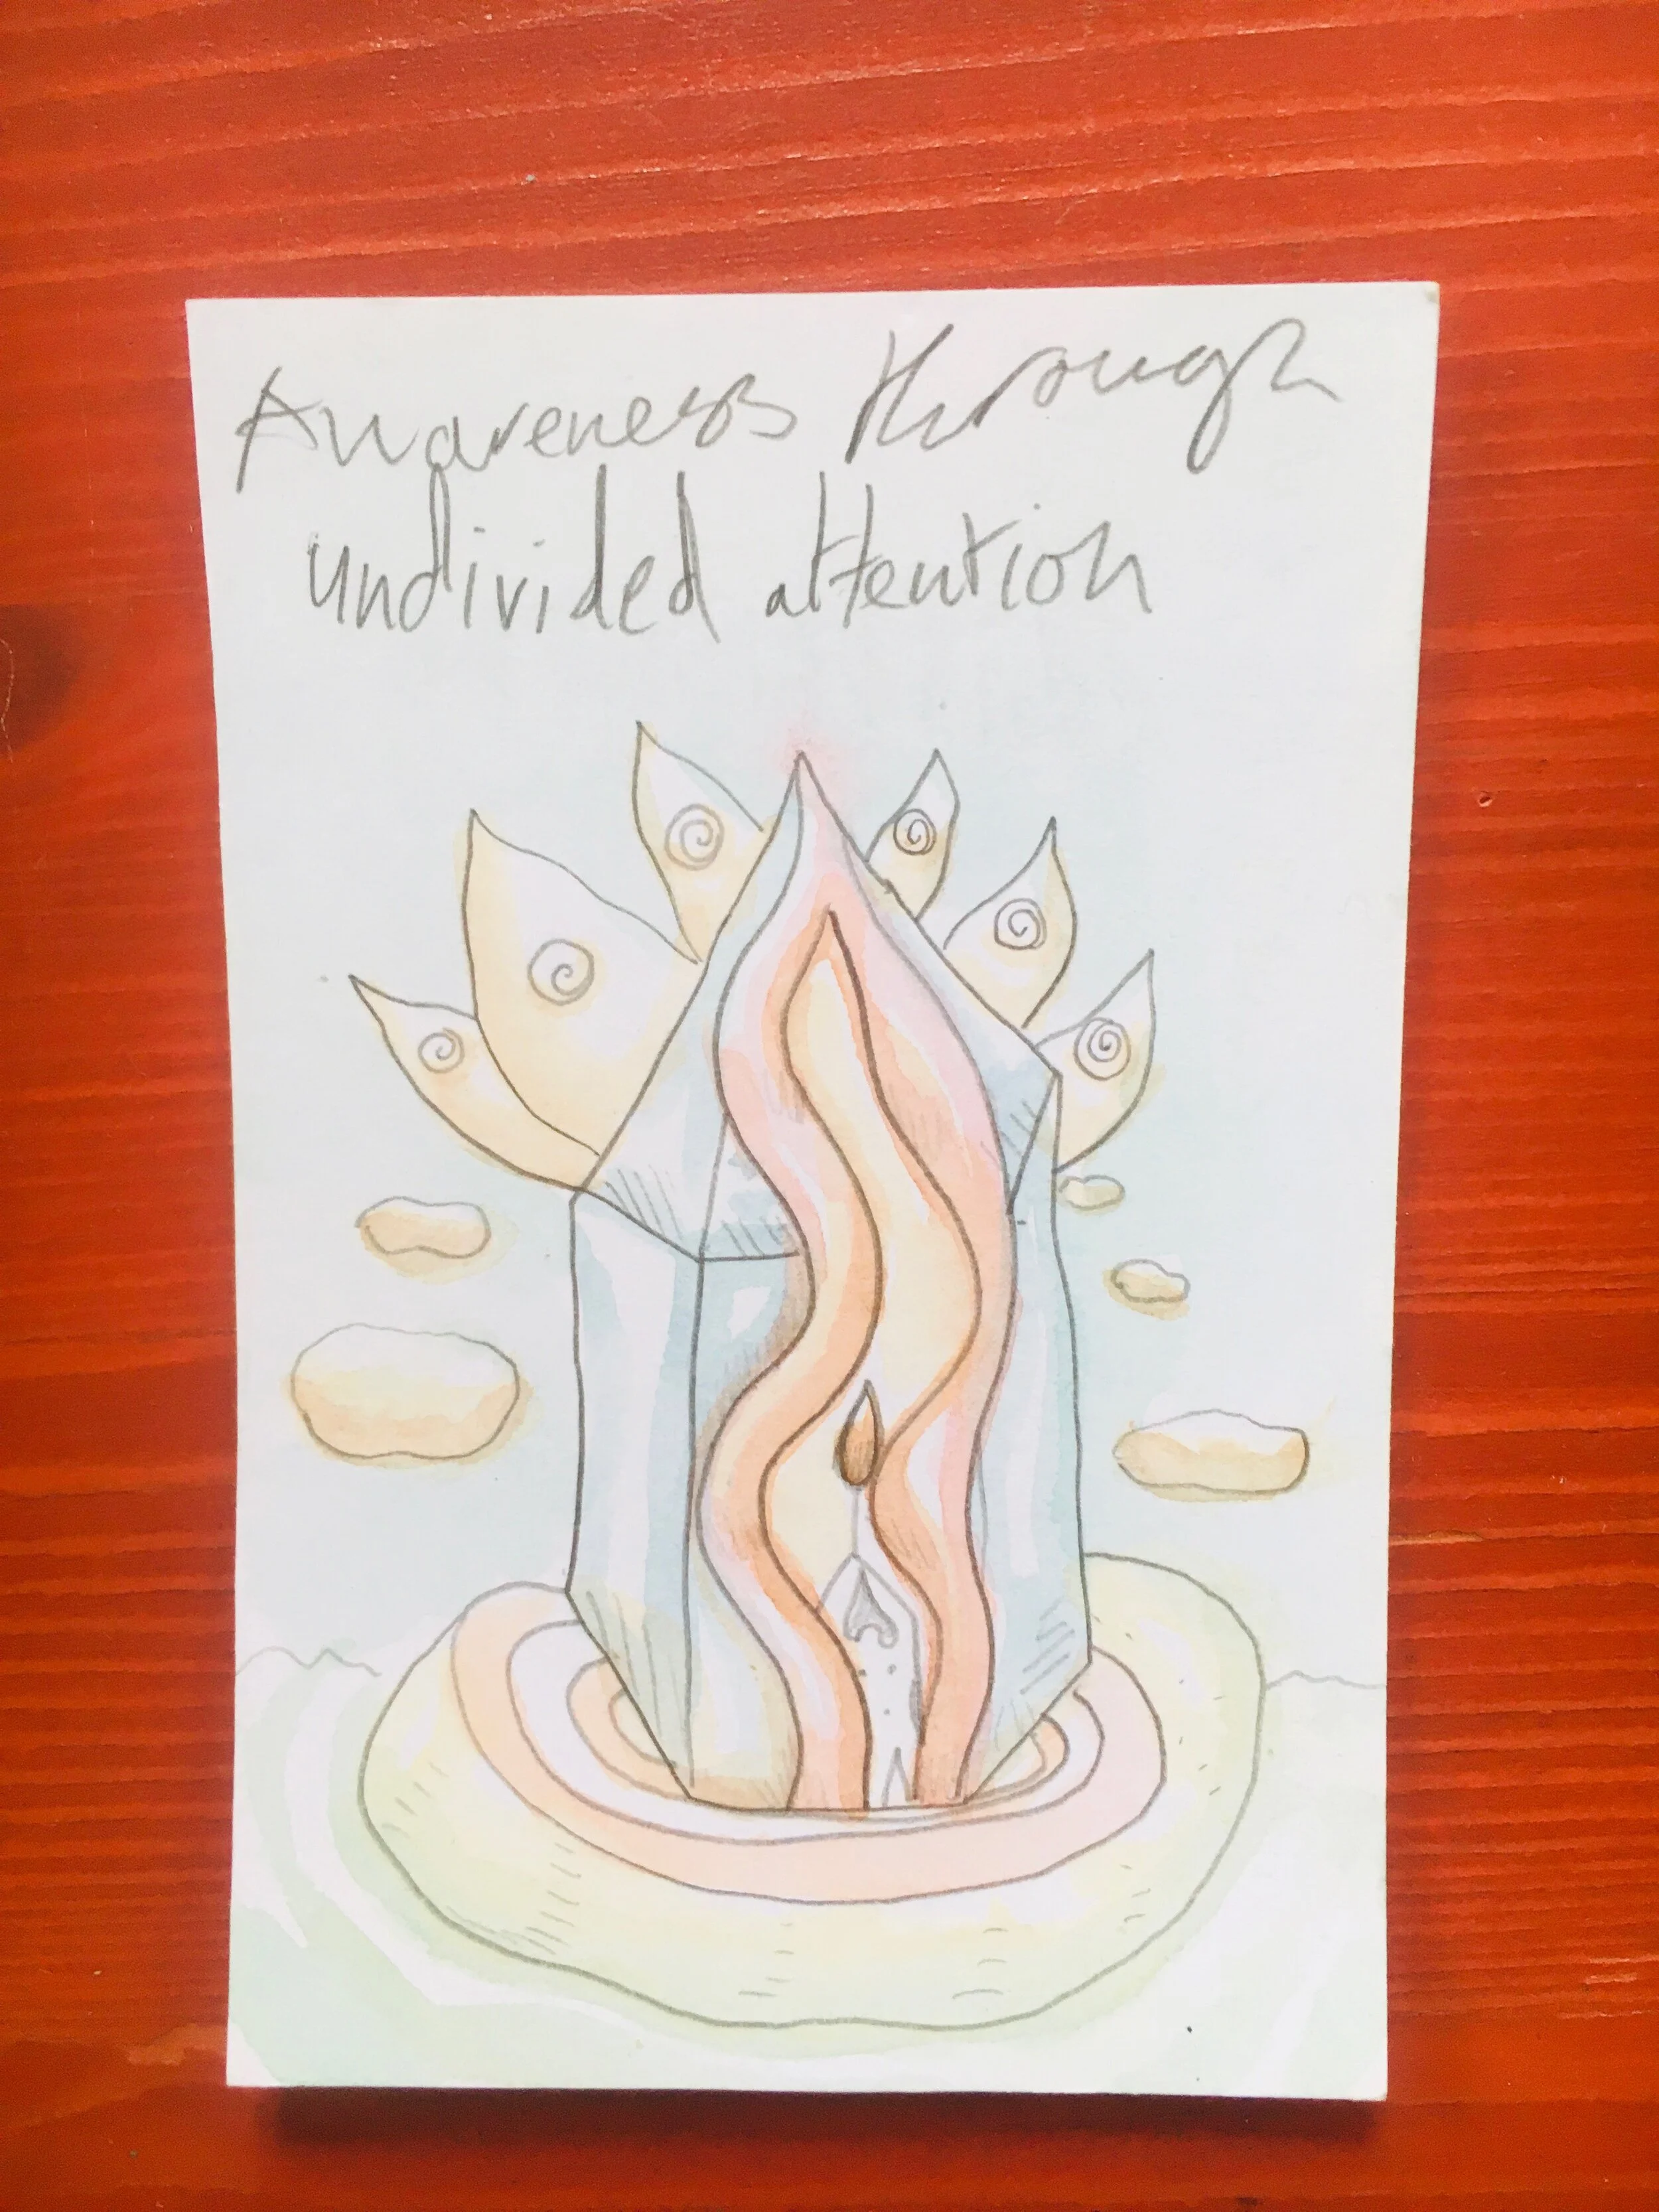 Awareness through
undivided attention